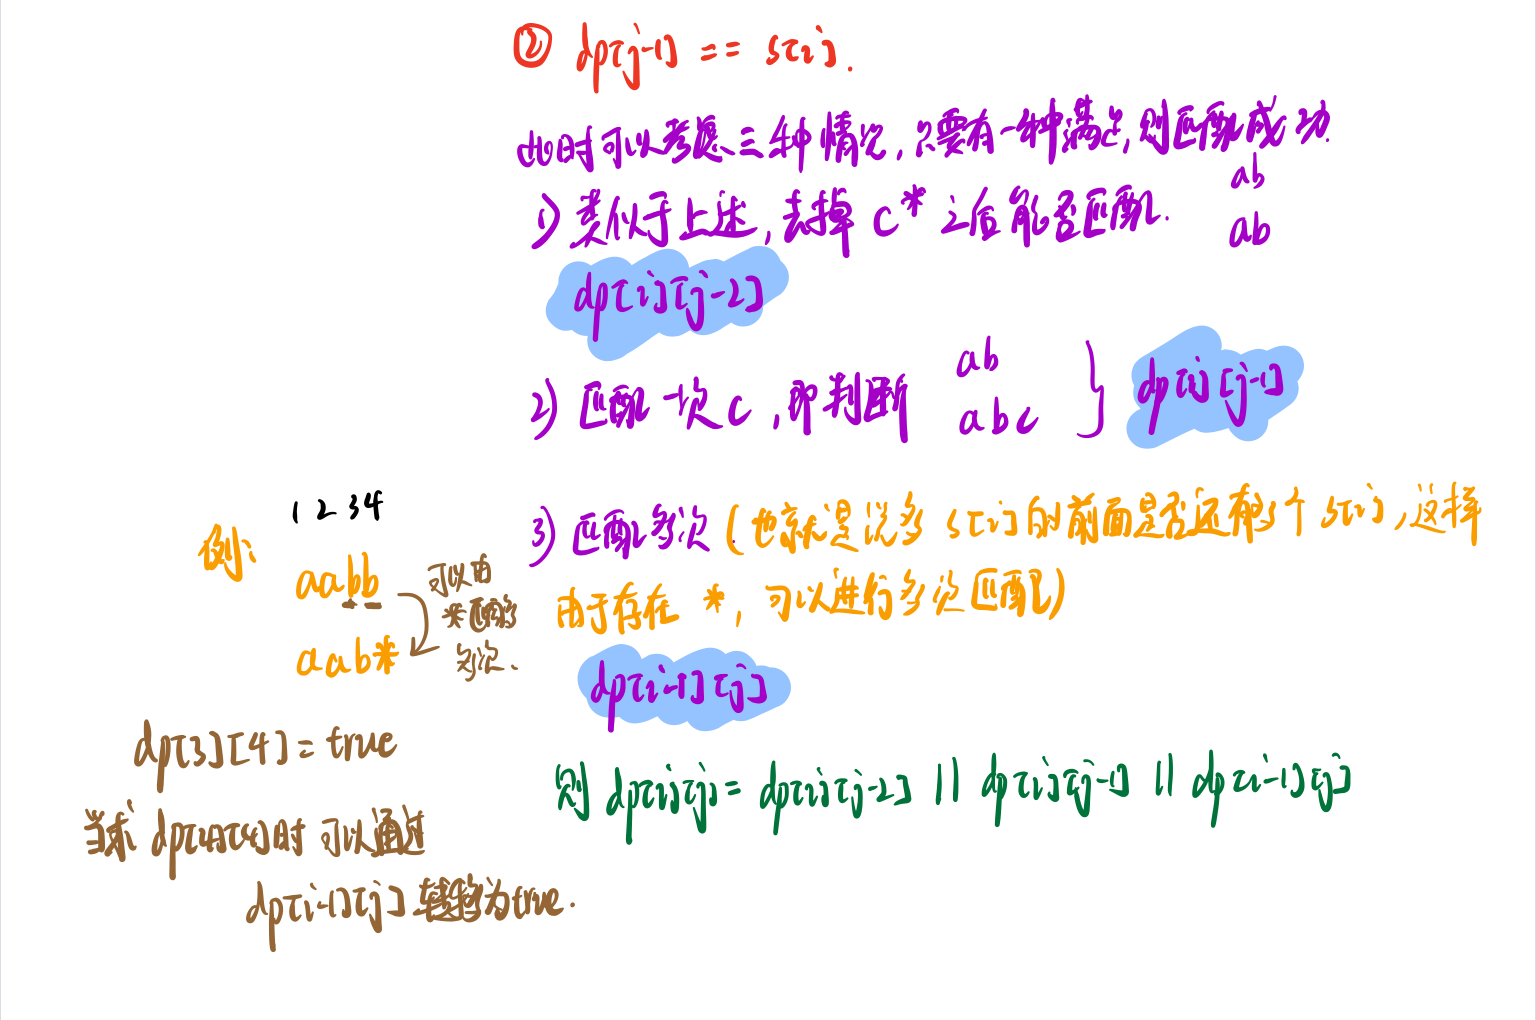 ② dp[j-1] == s[i].
此时可以考虑三种情况,只要有一种满足,则匹配成功.
1) 类似于上述,去掉 c* 之后能否匹配.
ab
ab
dp[i][j-2]
2) 匹配一次c,即判断
ab
abc
dp[i][j-1]
3) 匹配多次(也就是说多 s[i]的前面是否还有多个 s[i],这样
由于存在 *, 可以进行多次匹配)
dp[i-1][j]
则 dp[i][j] = dp[i][j-2] || dp[i][j-1] || dp[i-1][j]
例:
1 2 3 4
aabb
aab*
可以由
*匹配多
次.
dp[3][4] = true
当求 dp[4][4]时 可以通过
dp[i-1][j] 转移为true.